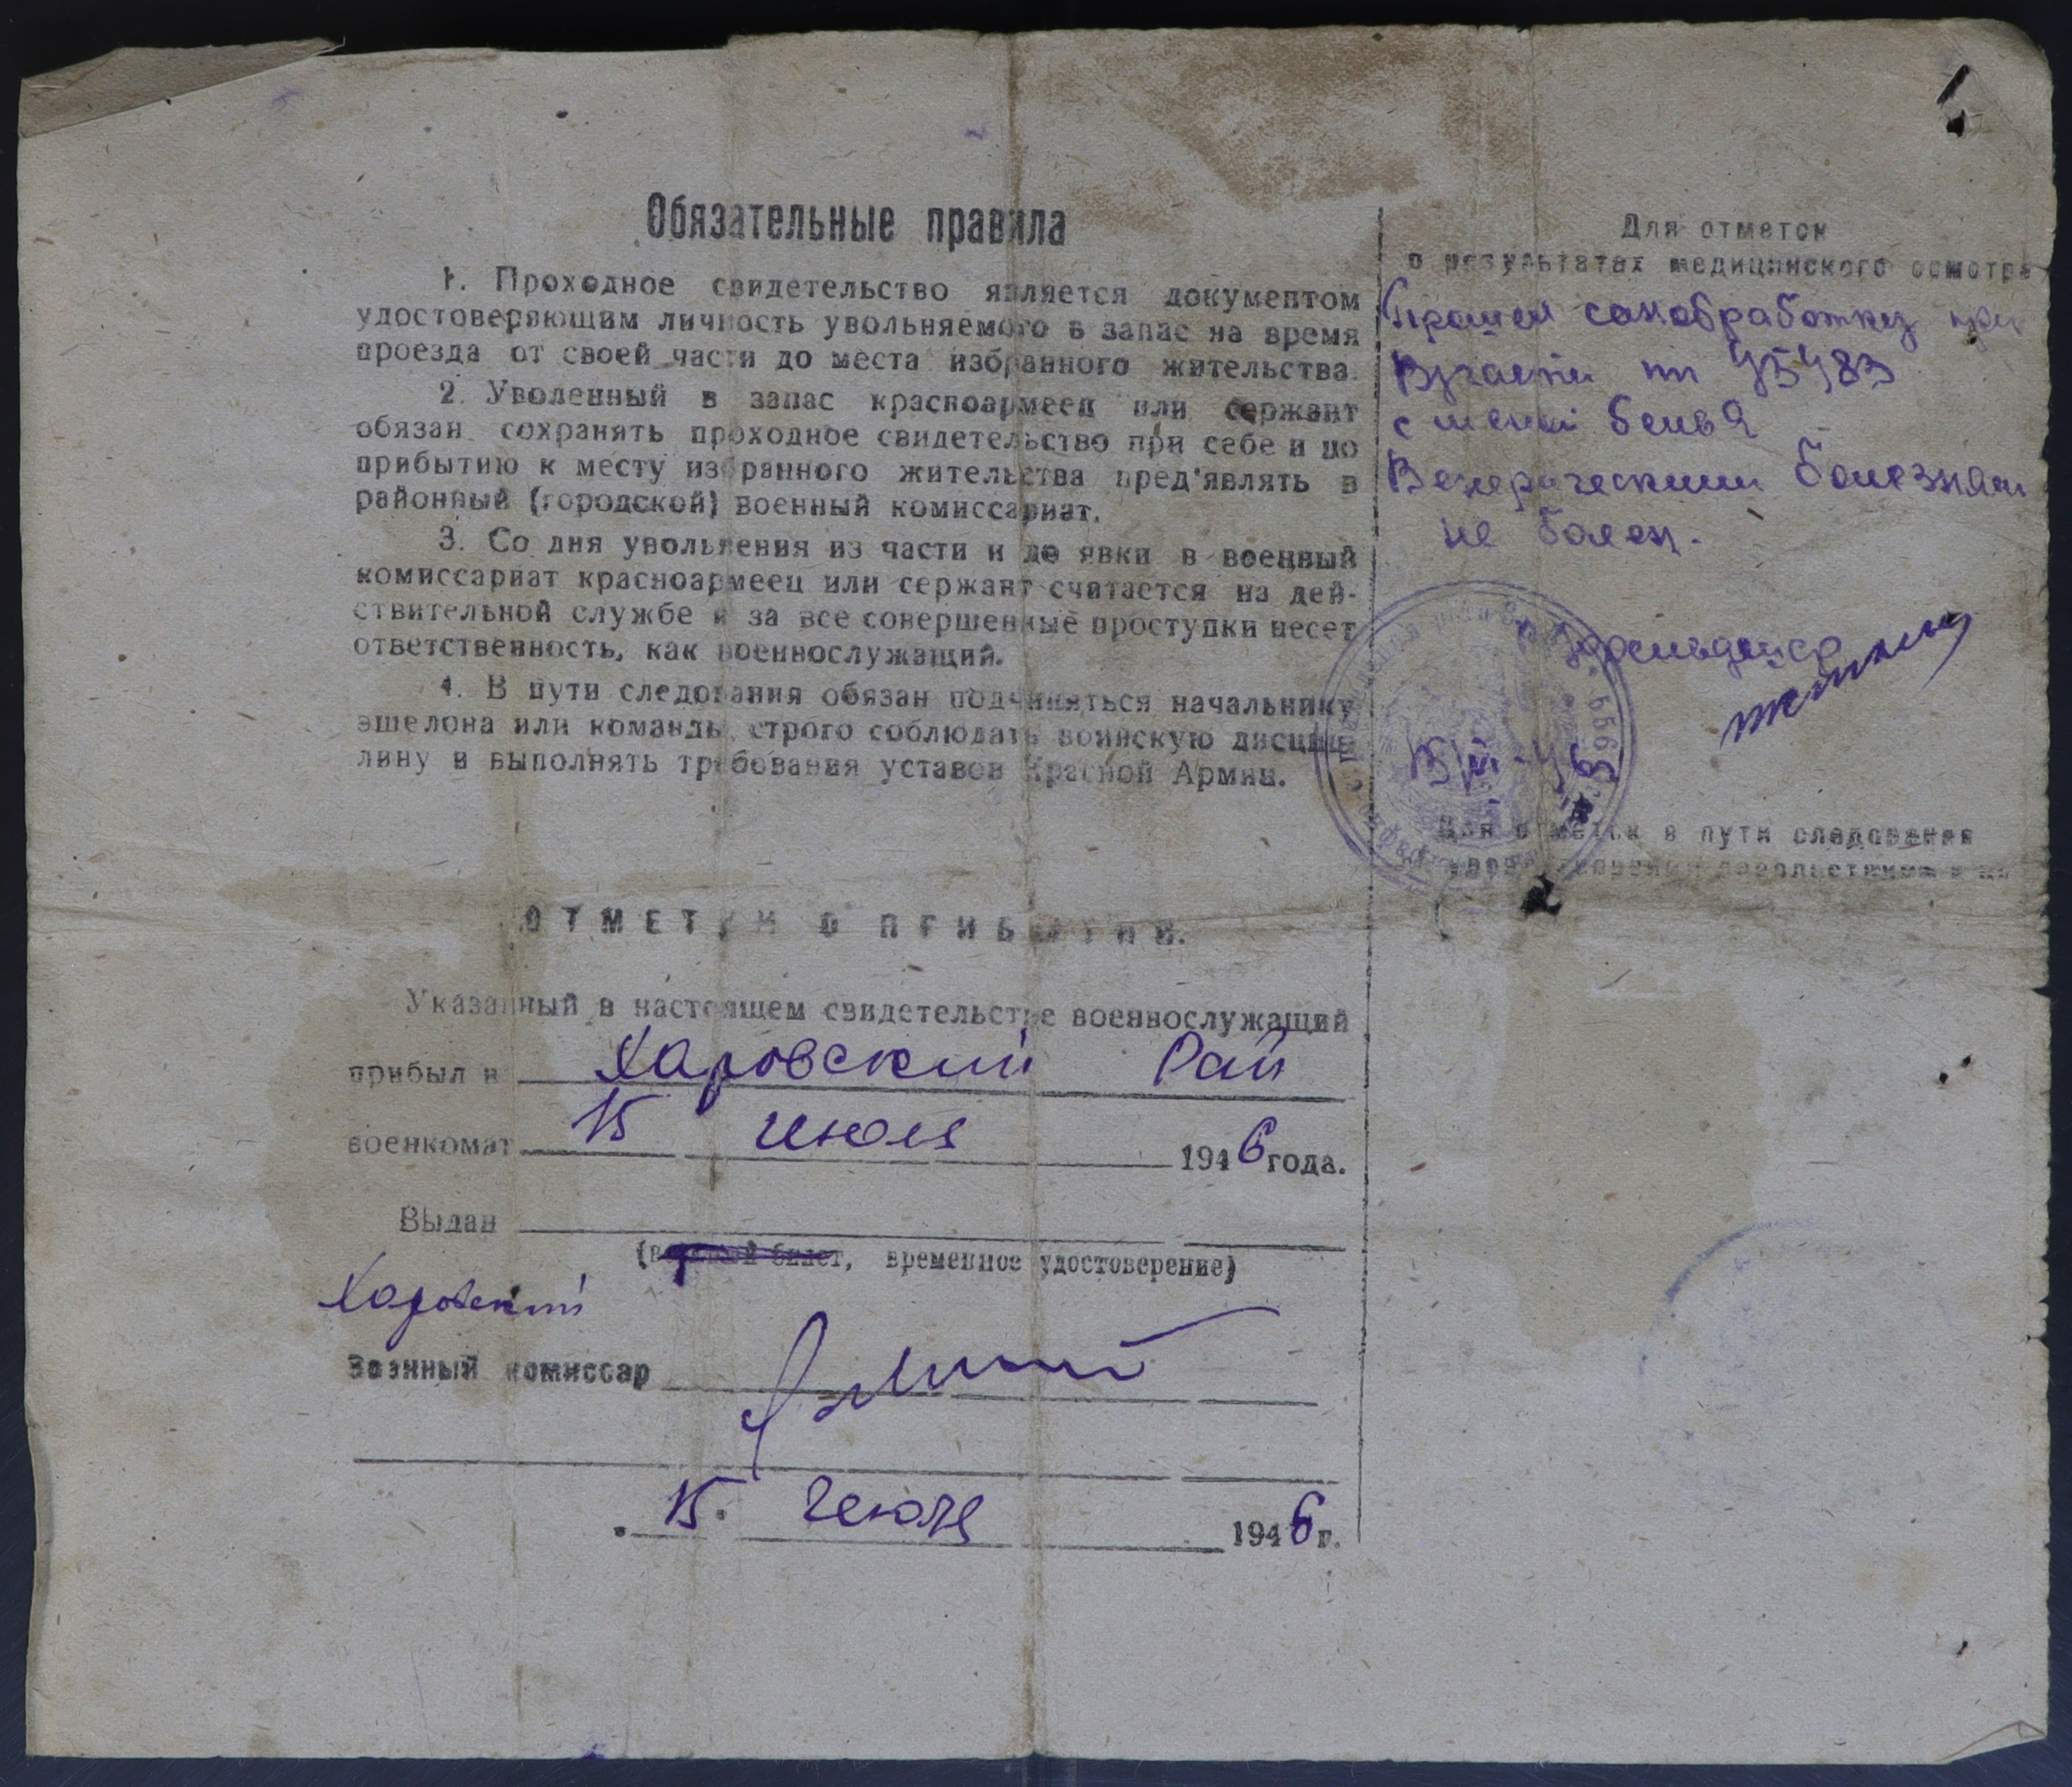 Обязательные правила
1. Проходное свидетельство является документом
удостоверяющим личность увольняемого в запас на время
проезда от своей части до места избранного жительства.
2. Уволенный в запас красноармеец или сержант
обязан сохранять проходное свидетельство при себе и по
прибытию к месту избранного жительства пред'являть в
районный (городской) военный комиссариат.
3. Со дня увольнения из части и до явки в военный
комиссариат красноармеец или сержант считается на дей-
ствительной службе и за все совершенные проступки несет
ответственность, как военнослужащий.
4. В пути следования обязан подчиняться начальнику
эшелона или команды, строго соблюдать воинскую дисцип-
лину и выполнять требования уставов Красной Армии.
ОТМЕТКИ О ПРИБЫТИИ.
Указанный в настоящем свидетельстве военнослужащий
прибыл в Харовский Рай
военкомат 15 июля 1946 года.
Выдан
(военный билет, временное удостоверение)
Харовский
Военный комиссар
15. Июля 1946 г.
Для отметок
о результатах медицинского осмотра
Прошел санобработку при
В/части пп 45483
с меной белья
Венерическими болезнями
не болен.
Для отметок в пути следования
довольствием и